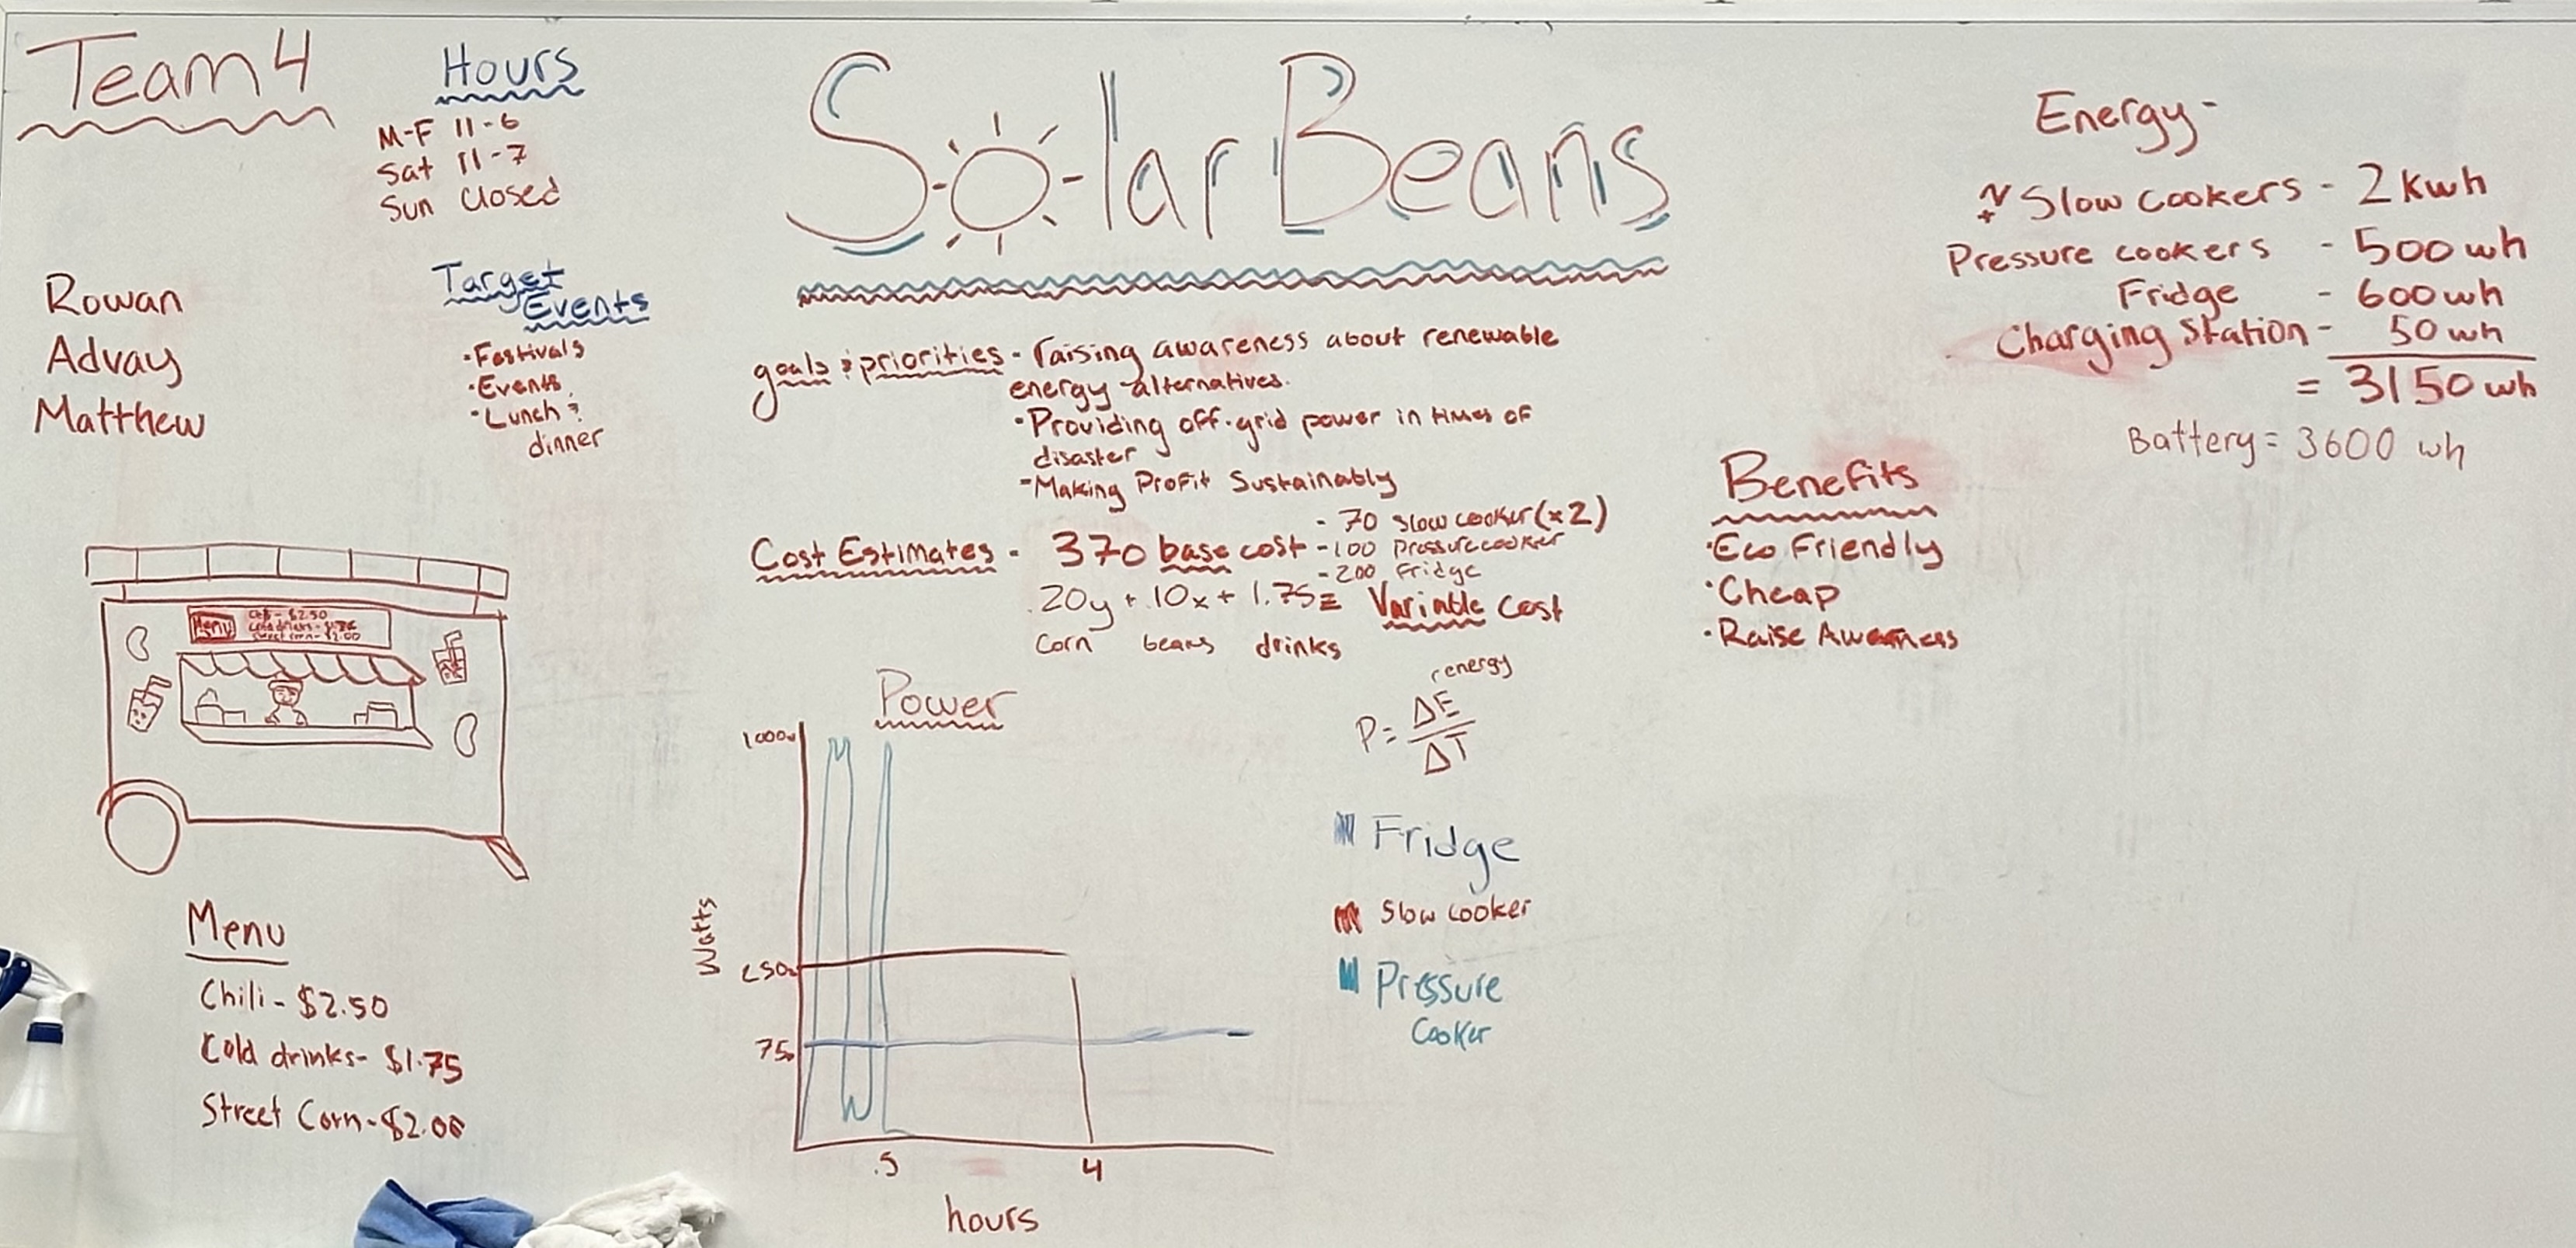 Team 4
Hours
M-F 11-6
Sat 11-7
Sun Closed
Rowan
Advay
Matthew
Target
Events
·Festivals
·Events
·Lunch &
dinner
Menu
Menu
Chili - $2.50
Cold drinks- $1.75
Street Corn-$2.00
Solar Beans
goals & priorities - raising awareness about renewable
energy alternatives.
·Providing off-grid power in times of
disaster
-Making Profit Sustainably
Cost Estimates - 370 base cost
- 70 slow cooker (x2)
-100 Pressure cooker
-200 Fridge
.20y + .10x + 1.75z Variable Cost
Corn beans drinks
Power
energy
P = ΔE
ΔT
1000w
250w
75w
Watts
.5 4
hours
Fridge
Slow cooker
Pressure
Cooker
Energy-
Slow cookers - 2 Kwh
Pressure cookers - 500 wh
Fridge - 600 wh
Charging Station - 50 wh
= 3150 wh
Battery = 3600 wh
Benefits
·Eco Friendly
·Cheap
·Raise Awarness